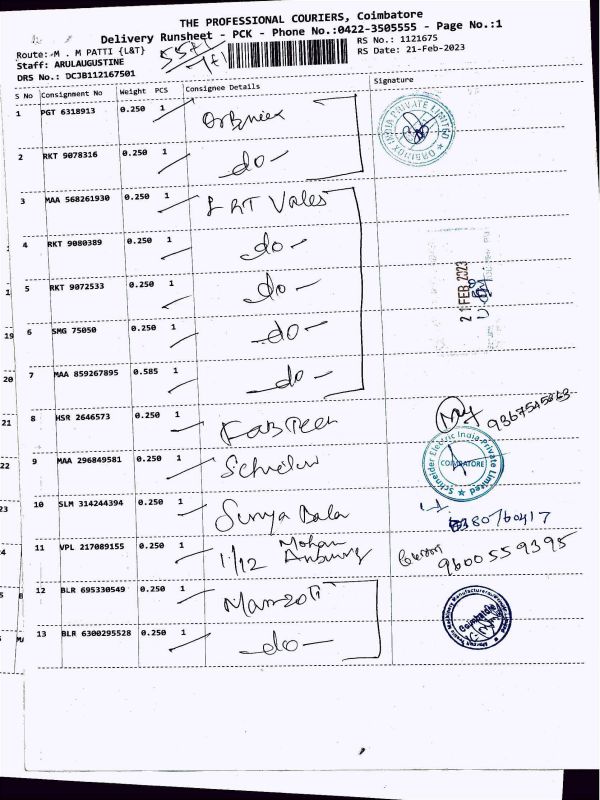 THE PROFESSIONAL COURIERS, Coimbatore
Delivery Runsheet - PCK - Phone No.:0422-3505555 - Page No.:1
Route: M . M PATTI {L&T}
RS No.: 1121675
Staff: ARULAUGUSTINE
RS Date: 21-Feb-2023
DRS No.: DCJB112167501
S No Consignment No Weight PCS Consignee Details Signature
1 PGT 6318913 0.250 1
2 RKT 9078316 0.250 1 do
3 MAA 568261930 0.250 1
4 RKT 9080389 0.250 1 do
21 FEB 2023
5 RKT 9072533 0.250 1 do
6 SMG 75050 0.250 1 do
7 MAA 859267895 0.585 1 do
8 HSR 2646573 0.250 1
9 MAA 296849581 0.250 1
Schneider Electric India Private Limited
COIMBATORE
10 SLM 314244394 0.250 1 Surya Bala
11 VPL 217089155 0.250 1 1/12 Mohan
9600559395
12 BLR 695330549 0.250 1
Coimbatore
13 BLR 6300295528 0.250 1 do
19
20
21
22
23